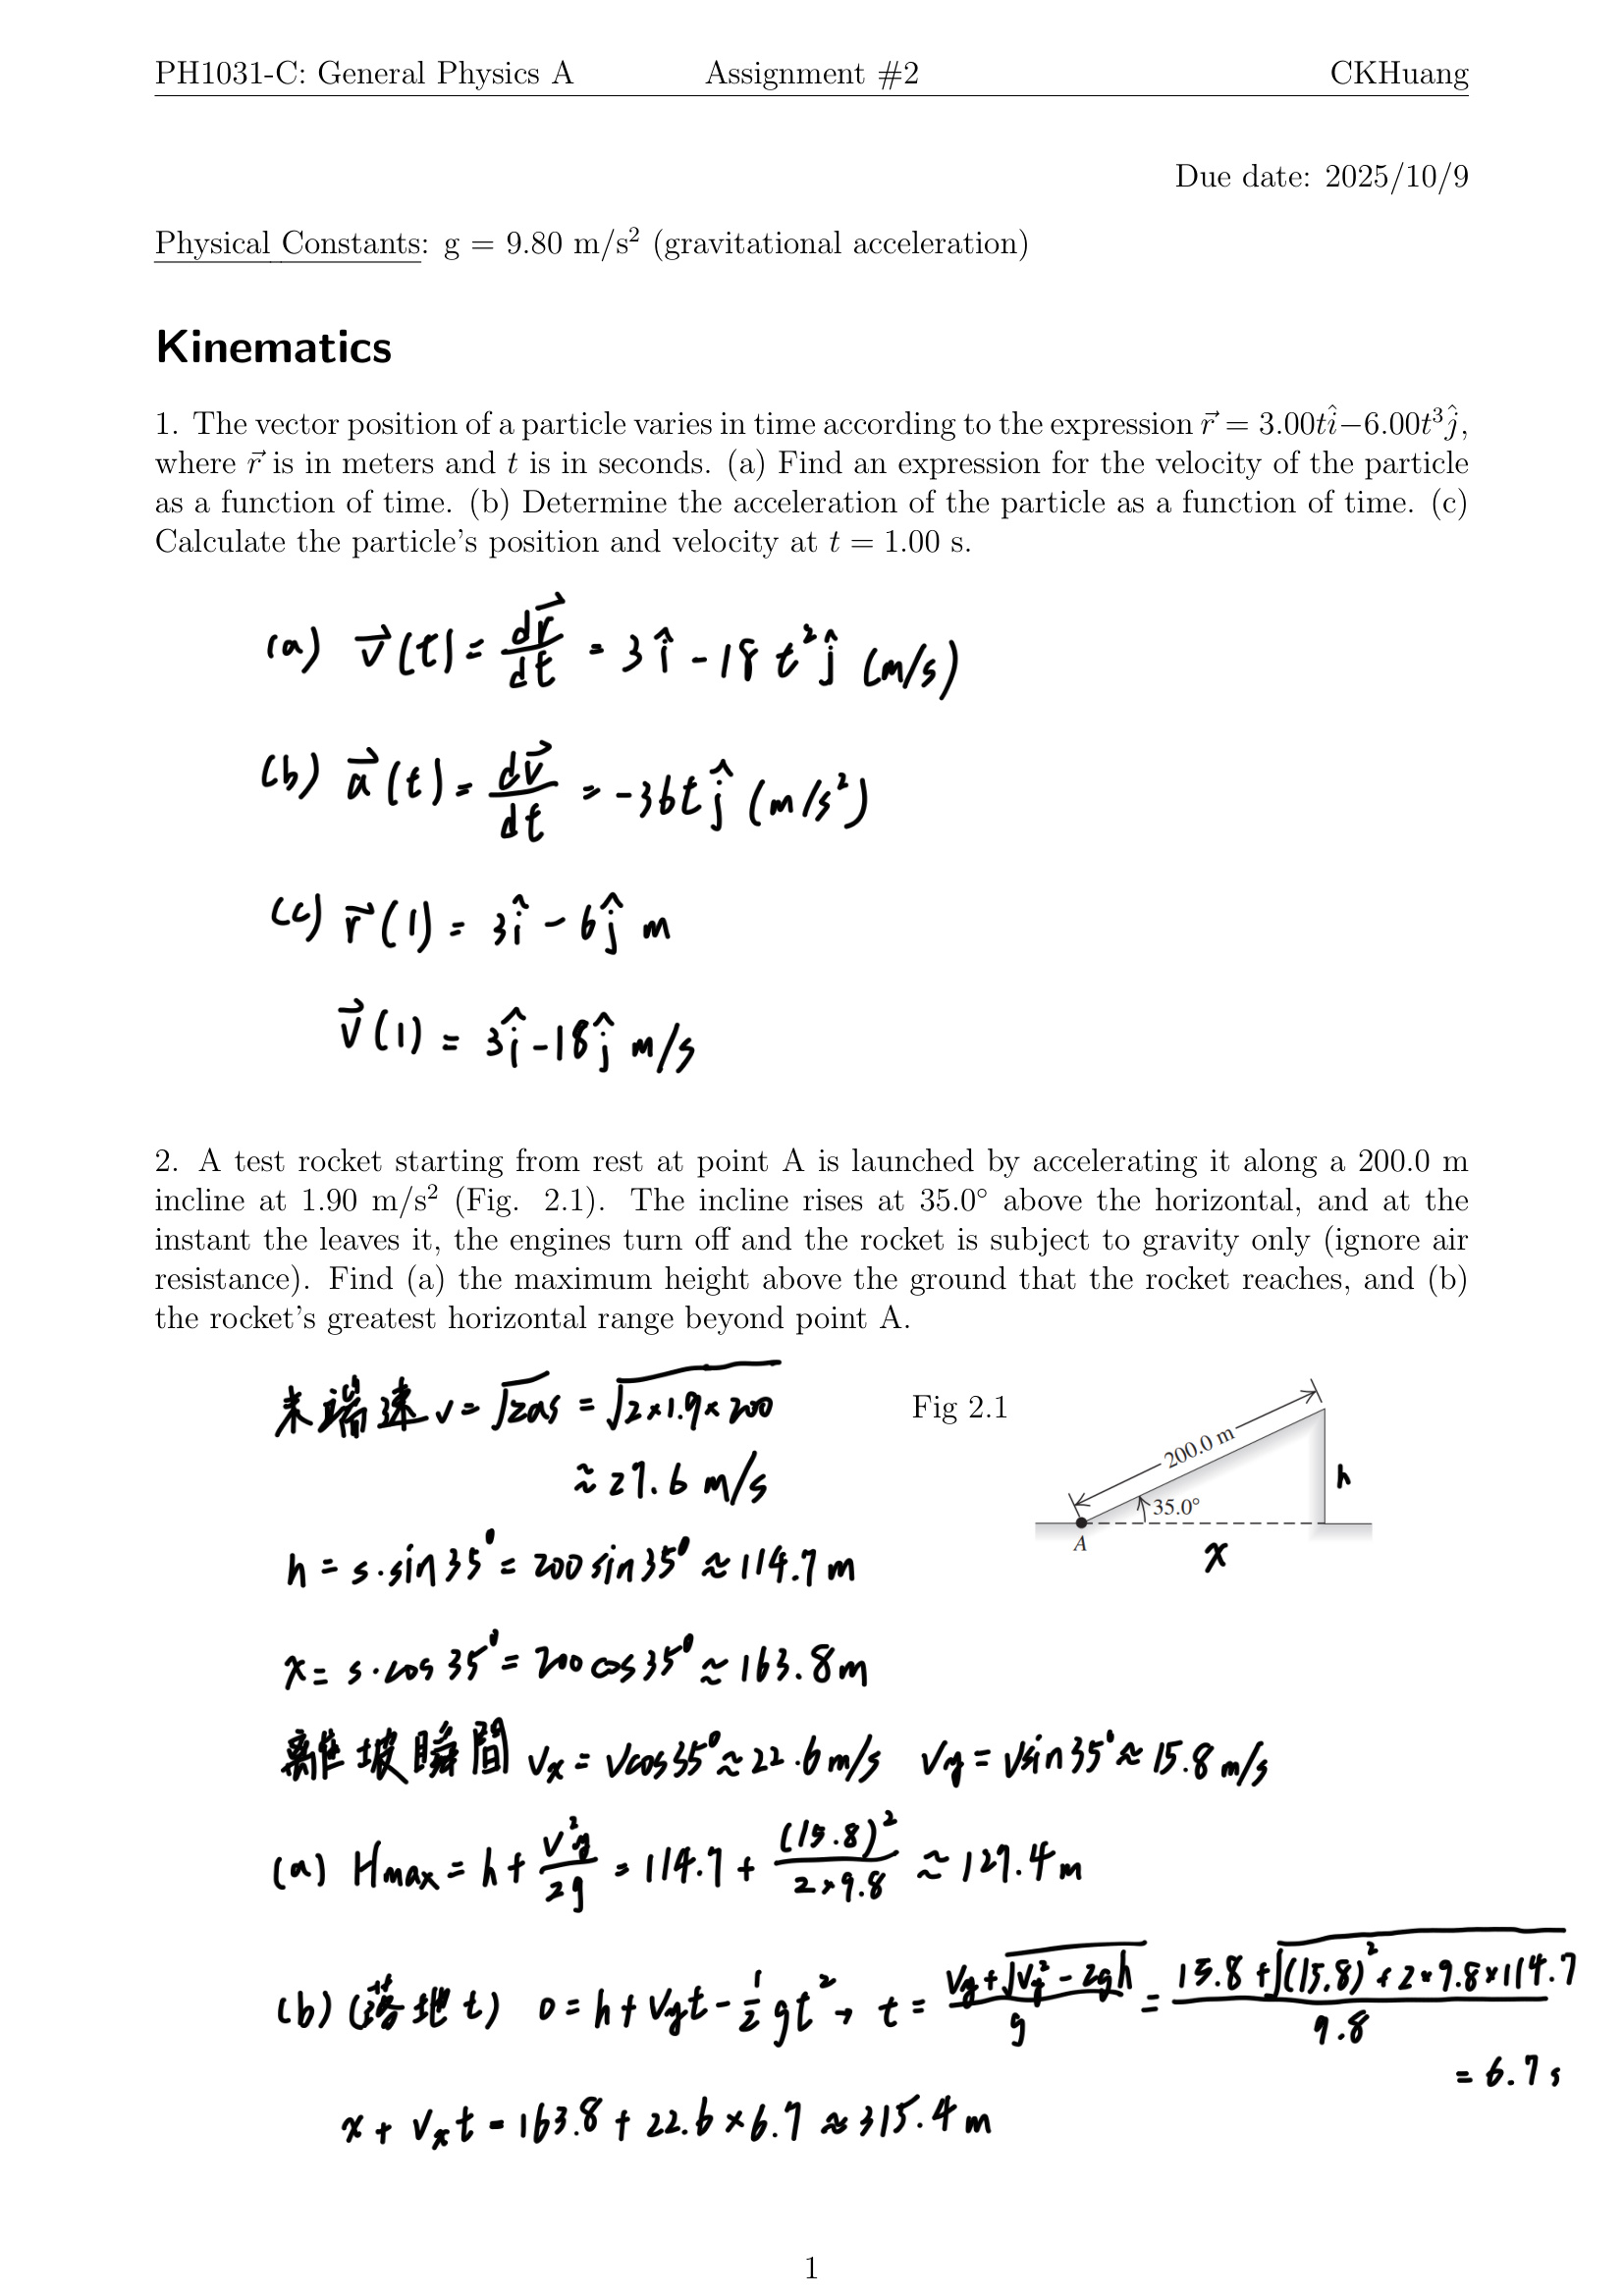 PH1031-C: General Physics A Assignment #2 CKHuang
Due date: 2025/10/9
Physical Constants: g = 9.80 m/s² (gravitational acceleration)
Kinematics
1. The vector position of a particle varies in time according to the expression r⃗ = 3.00tî−6.00t³ĵ,
where r⃗ is in meters and t is in seconds. (a) Find an expression for the velocity of the particle
as a function of time. (b) Determine the acceleration of the particle as a function of time. (c)
Calculate the particle's position and velocity at t = 1.00 s.
(a) v⃗(t) = dr⃗/dt = 3î - 18t²ĵ (m/s)
(b) a⃗(t) = dv⃗/dt = -36tĵ (m/s²)
(c) r⃗(1) = 3î - 6ĵ m
v⃗(1) = 3î - 18ĵ m/s
2. A test rocket starting from rest at point A is launched by accelerating it along a 200.0 m
incline at 1.90 m/s² (Fig. 2.1). The incline rises at 35.0° above the horizontal, and at the
instant the leaves it, the engines turn off and the rocket is subject to gravity only (ignore air
resistance). Find (a) the maximum height above the ground that the rocket reaches, and (b)
the rocket's greatest horizontal range beyond point A.
末端速 v = √2as = √2×1.9×200
≈ 27.6 m/s
Fig 2.1
200.0 m
35.0°
h
A
x
h = s·sin35° = 200 sin35° ≈ 114.7 m
x = s·cos35° = 200 cos35° ≈ 163.8 m
離坡瞬間 vx = vcos35° ≈ 22.6 m/s vy = vsin35° ≈ 15.8 m/s
(a) Hmax = h + v²y/2g = 114.7 + (15.8)²/2×9.8 ≈ 127.4 m
(b) (落地 t) 0 = h + vyt - ½gt² → t = (vy+√vy²-2gh)/g = (15.8+√(15.8)²+2×9.8×114.7)/9.8
= 6.7 s
x + vxt = 163.8 + 22.6×6.7 ≈ 315.4 m
1